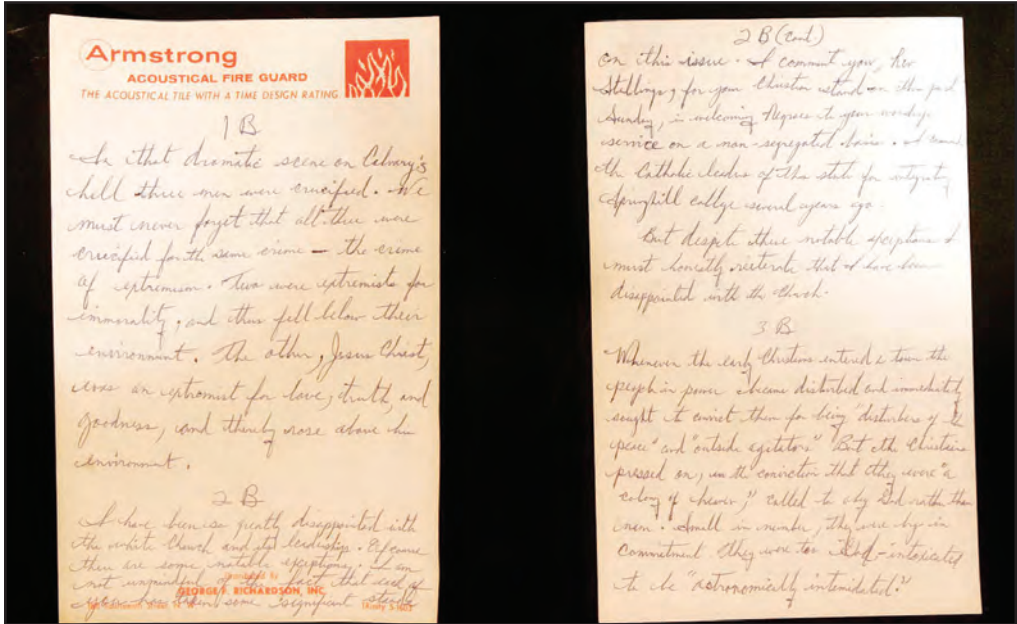 Armstrong
ACOUSTICAL FIRE GUARD
THE ACOUSTICAL TILE WITH A TIME DESIGN RATING
1 B
In that dramatic scene on Calvary's
hill three men were crucified. We
must never forget that all three were
crucified for the same crime — the crime
of extremism. Two were extremists for
immorality, and thus fell below their
environment. The other, Jesus Christ,
was an extremist for love, truth, and
goodness, and thereby rose above his
environment.
2 B
I have been so greatly disappointed with
the white Church and its leadership. Of course
there are some notable exceptions. I am
not unmindful of the fact that each of
you has taken some significant stands
GEORGE F. RICHARDSON, INC.
2 B (cont)
on this issue. I commend you, Rev
Stallings, for your Christian stand on this past
Sunday, in welcoming Negroes to your worship
service on a non-segregated basis. I commend
the Catholic leaders of this state for integrating
Springhill college several years ago.
But despite these notable exceptions I
must honestly reiterate that I have been
disappointed with the Church.
3 B
Whenever the early Christians entered a town the
people in power became disturbed and immediately
sought to convict them for being "disturbers of the
peace" and "outside agitators" But the Christians
pressed on, in the conviction that they were "a
colony of heaven," called to obey God rather than
man. Small in number, they were big in
commitment. They were too God-intoxicated
to be "astronomically intimidated."